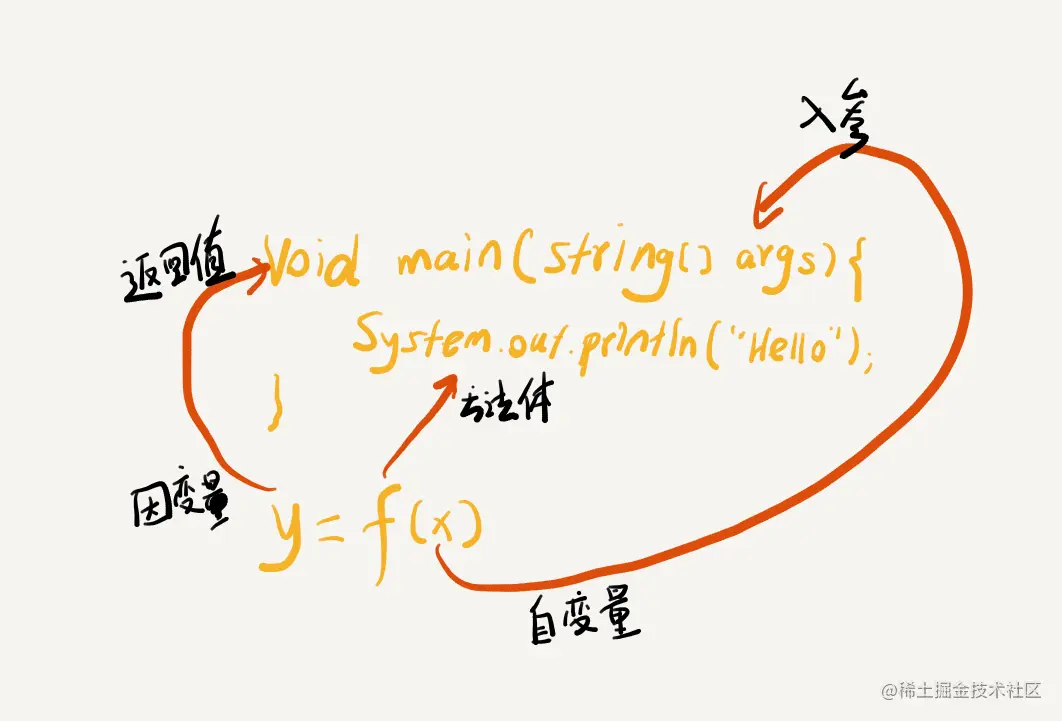 入参
返回值
void main(string[] args){
System.out.println("Hello");
}
方法体
因变量
y=f(x)
自变量
@稀土掘金技术社区